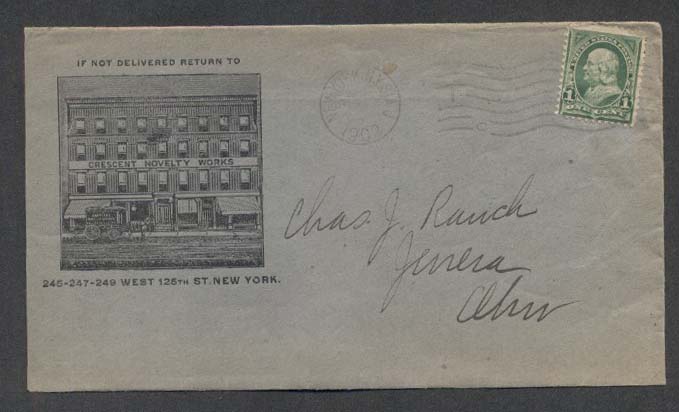 IF NOT DELIVERED RETURN TO
CRESCENT NOVELTY WORKS
245-247-249 WEST 125TH ST. NEW YORK.
1902
UNITED STATES POSTAGE
1 1
Chas. J. Rauch
Jenera
Ohio